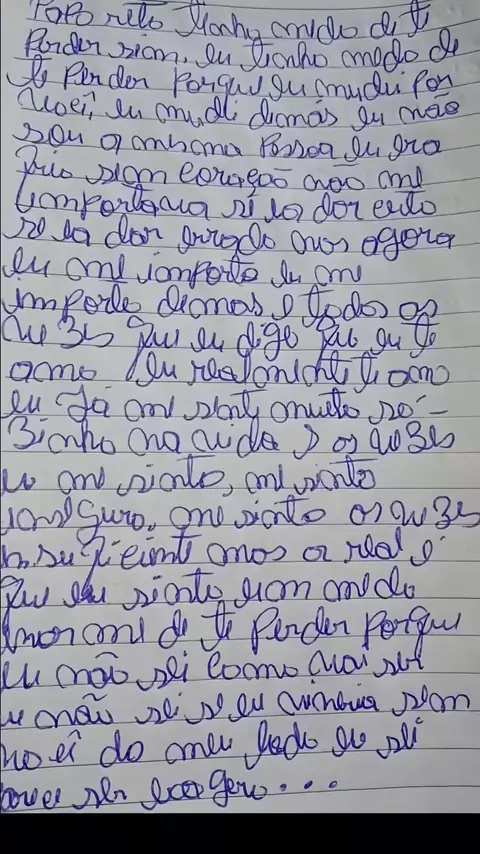 Papo reto tenho medo de te
Perder sim, eu tenho medo de
te Perder Porque eu mudei Por
você, eu mudei demas eu não
sou a mesma Pessoa eu era
frio sem coração não me
importava si ia dor certo
se ia dar errado mas agora
eu me importo eu me
importo demas e todos as
ve3es que eu digo que eu te
amo eu realmente te amo
eu Já me senti muito so-
3inho na vida e as ve3es
eu me sinto, me sinto
inseguro, me sinto as ve3es
insuficiente mas a real é
que eu sinto um medo
enorme de te Perder Porque
eu não sei como vai ser
e não sei se eu viveria sem
você do meu lado eu sei
ser exagero...